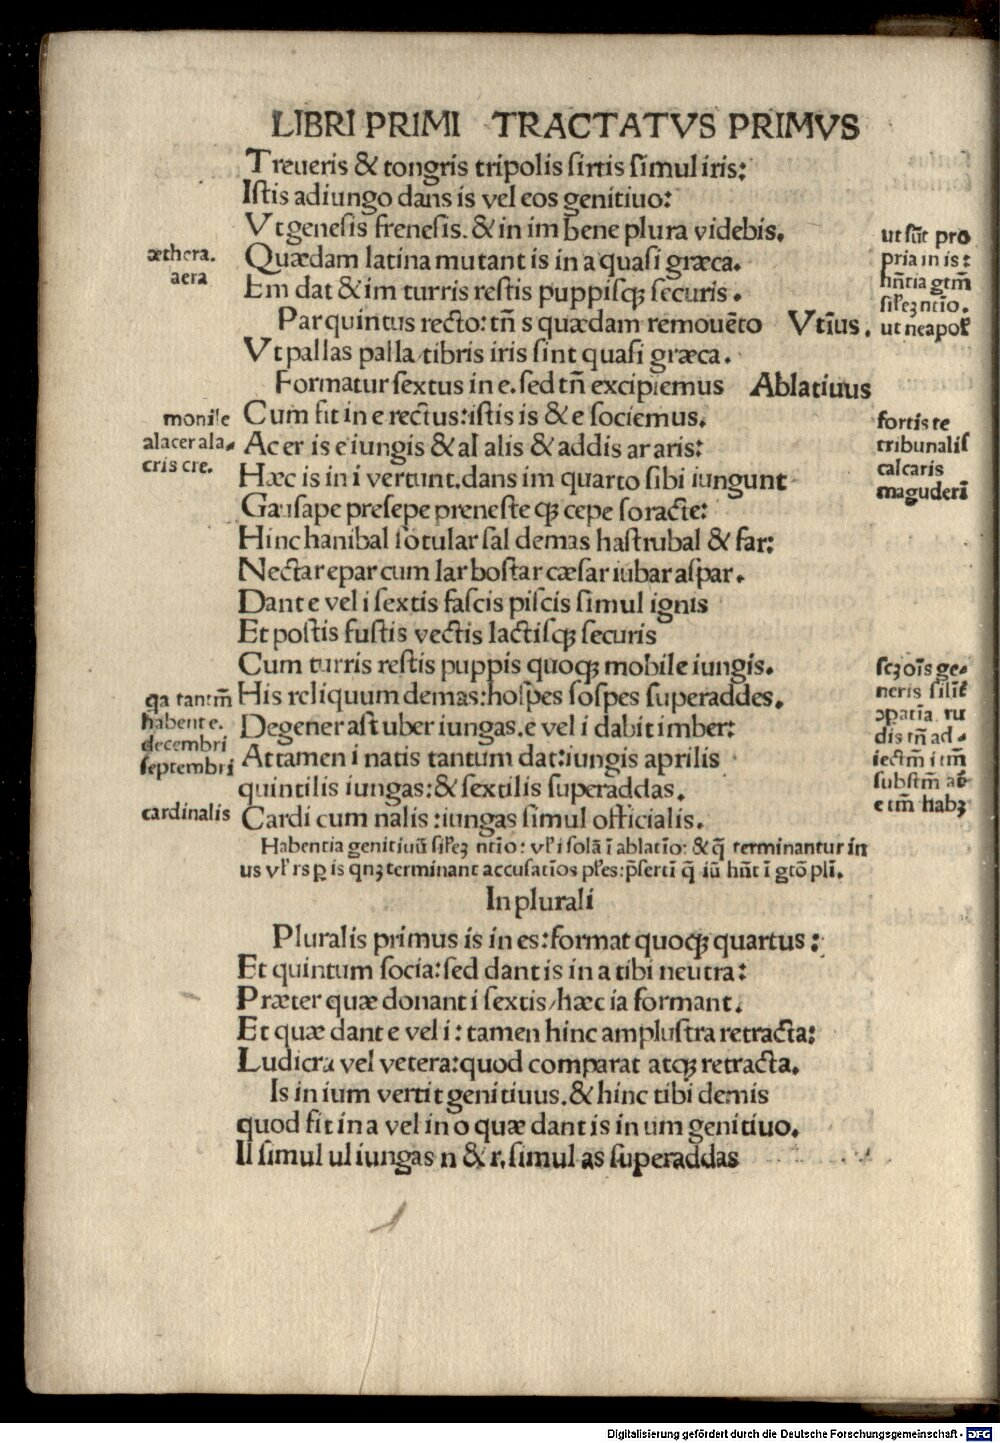 LIBRI PRIMI TRACTATVS PRIMVS
Treueris & tongris tripolis ſirtis ſimul iris:
Iſtis adiungo dans is vel eos genitiuo:
Vt geneſis freneſis. & in im bene plura videbis.
Quædam latina mutant is in a quaſi græca.
Em dat & im turris reſtis puppiſqꝫ ſecuris.
Par quintus recto: tñ s quædam remouēto Vtĩus.
Vt pallas palla/tibris iris ſint quaſi græca.
Formatur ſextus in e. ſed tñ excipiemus Ablatiuus
Cum fit in e rectus: iſtis is & e ſociemus.
Acer is e iungis & al alis & addis ar aris:
Hæc is in i vertunt. dans im quarto ſibi iungunt
Gauſape preſepe preneſte qꝫ cepe ſoracte:
Hinc hanibal ſotular ſal demas haſtrubal & far:
Nectar epar cum lar boſtar cæſar iubar aſpar.
Dant e vel i ſextis faſcis piſcis ſimul ignis
Et poſtis fuſtis vectis lactiſqꝫ ſecuris
Cum turris reſtis puppis quoqꝫ mobile iungis.
His reliquum demas: hoſpes ſoſpes ſuperaddes.
Degener aſt uber iungas. e vel i dabit imber:
Attamen i natis tantum dat: iungis aprilis
quintilis iungas: & ſextilis ſuperaddas.
Cardi cum nalis: iungas ſimul officialis.
Habentia genitiuũ ſiꝉeꝫ nt̃io: vꝉ i ſolã ĩ ablatĩo: & q̃ terminantur in
us vꝉ rs ꝑ is qnꝫ terminant accuſatĩos pꝉes: p̃ſerti q̃ iũ hñt ĩ gt̃o pli.
In plurali
Pluralis primus is in es: format quoqꝫ quartus:
Et quintum socia: ſed dant is in a tibi neutra:
Præter quæ donant i ſextis/hæc ia formant.
Et quæ dant e vel i: tamen hinc ampluſtra retracta:
Ludicra vel vetera: quod comparat atqꝫ retracta.
Is in ium vertit genitiuus. & hinc tibi demis
quod fit in a vel in o quæ dant is in um genitiuo.
Il ſimul ul iungas n & r. ſimul as ſuperaddas
æthera.
aera
monile
alacer ala-
cris cre.
qa tantm̃
habent e.
decembri
ſeptembri
cardinalis
ut ſũt pro
pria in is:
hñtia gtm̃
ſiꝉeꝫ nt̃io.
ut neapoꝉ
fortis te
tribunaliſ
calcaris
maguderĩ
ſcꝫ oĩs ge-
neris
ɔpatia ru
dis tñ ad-
iectm̃ i tm̃
ſubſtm̃ aƀ
e tm̃ habꝫ
Digitalisierung gefördert durch die Deutsche Forschungsgemeinschaft - DFG